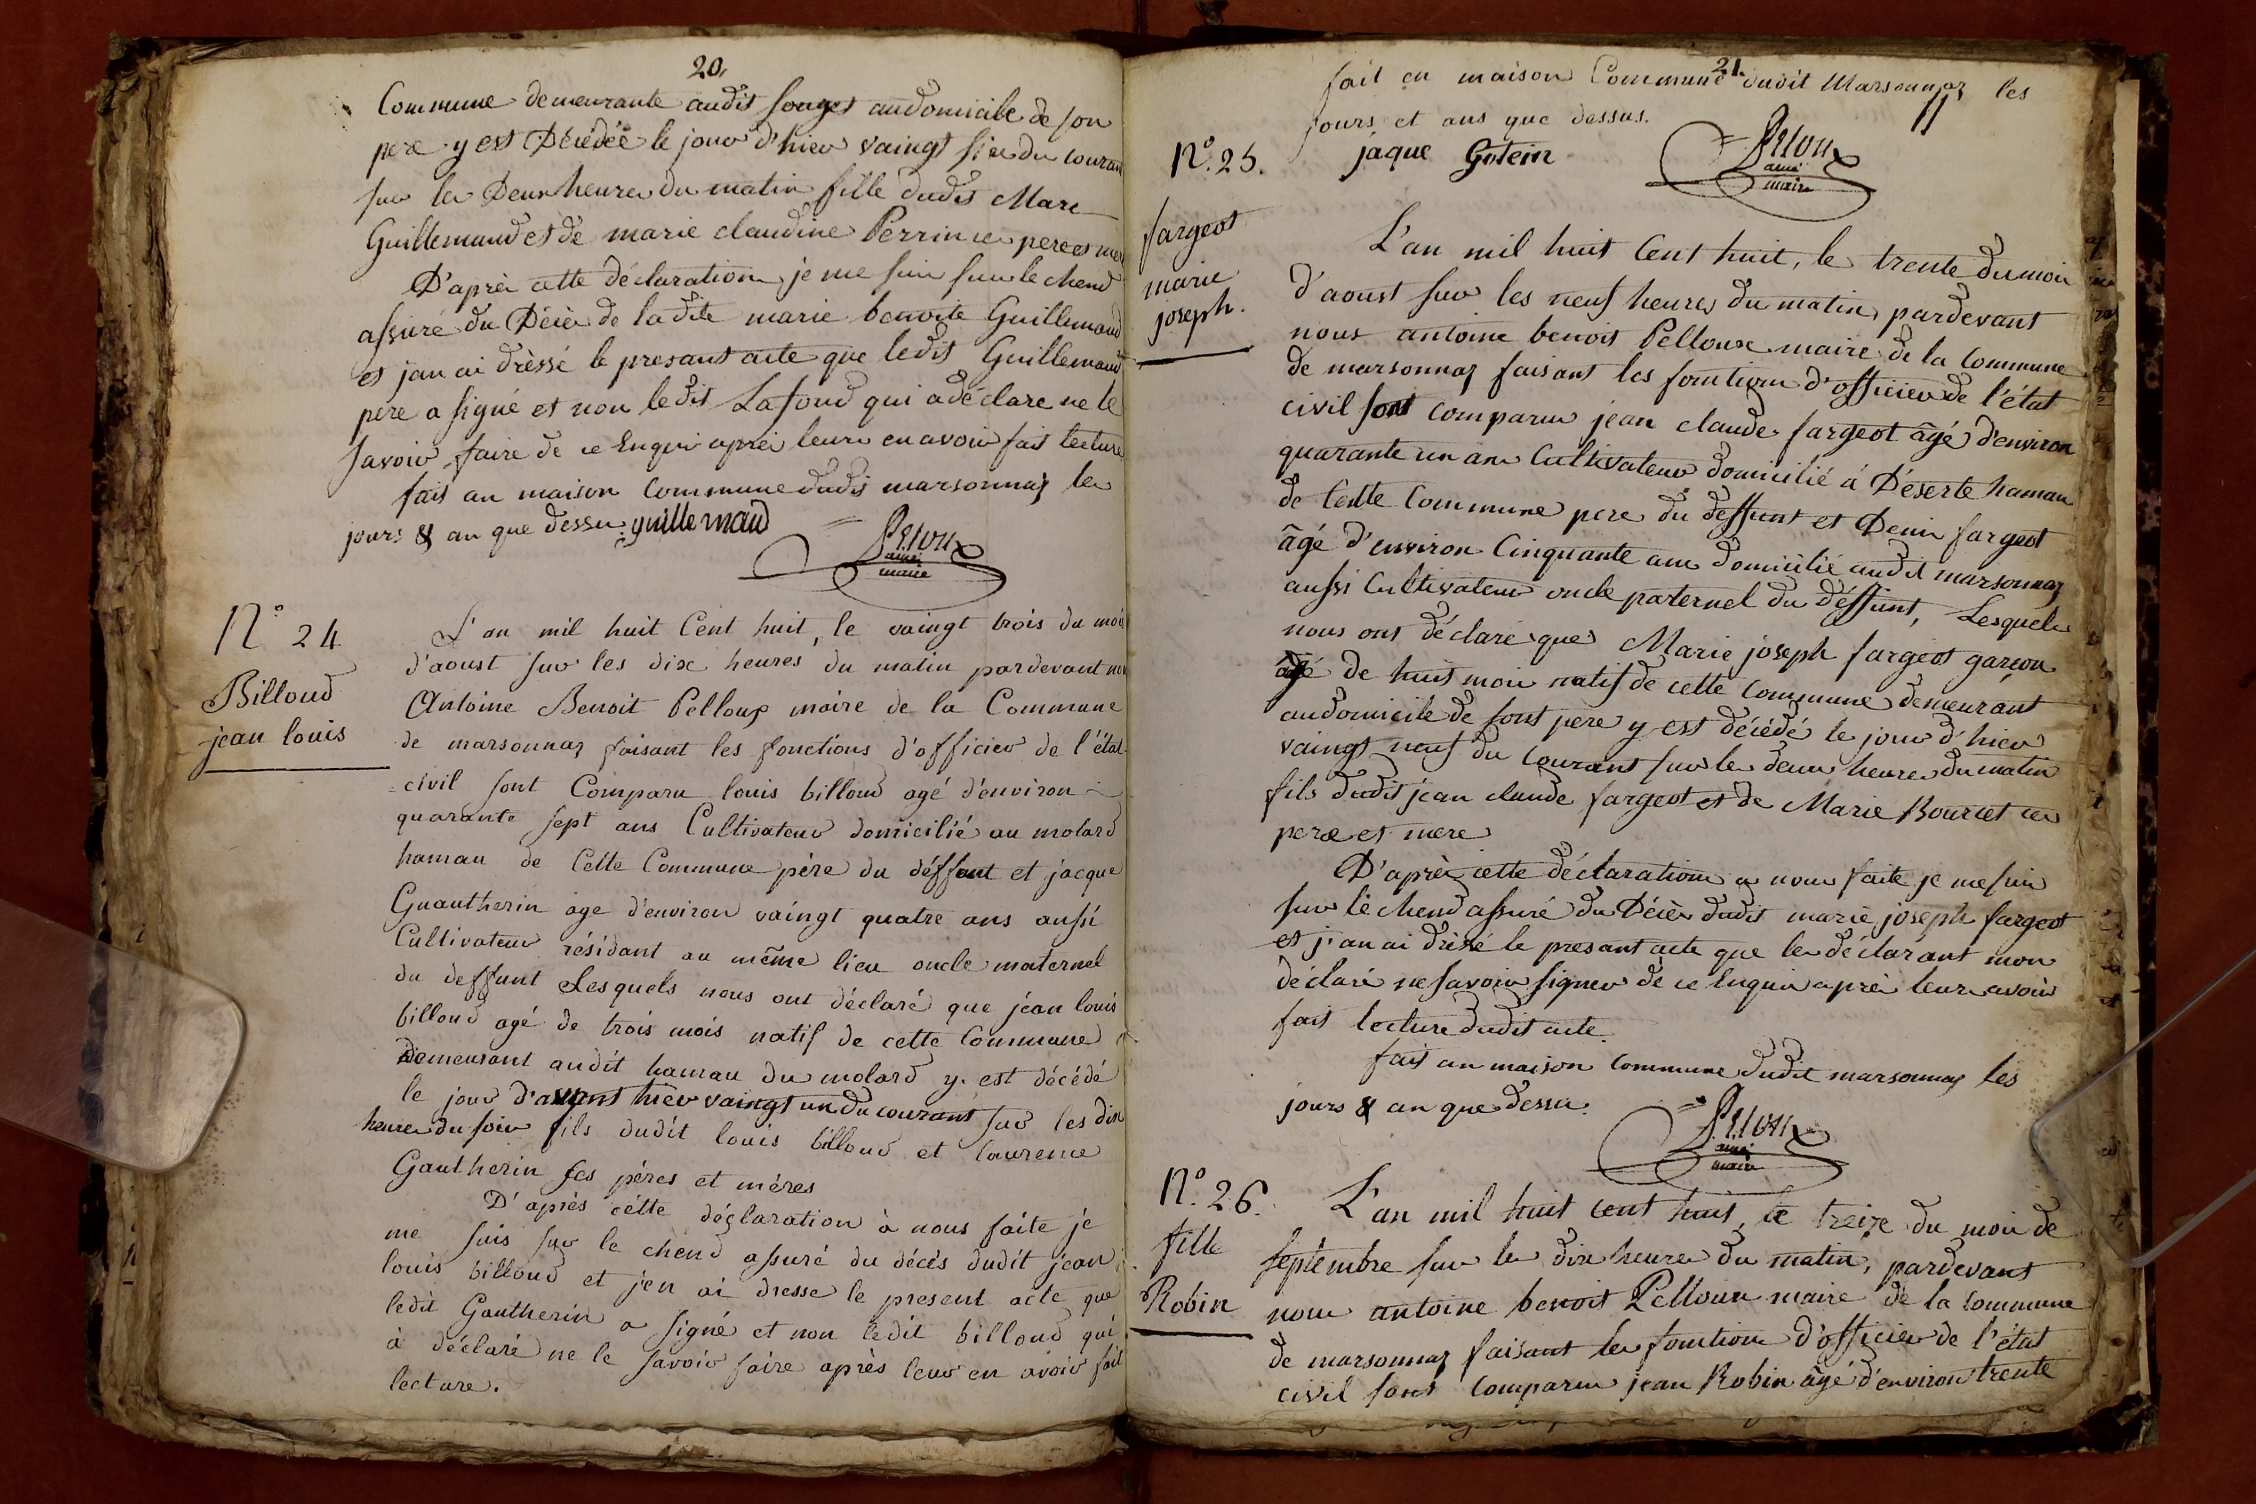 20.
Commune demeurante audit Souget audomicile de son
pere y est Décédée le jour d'hier vaingt six du couran
sur les Deux heures du matin fille dudit Marc
Guillemaud et de marie claudine Perrin ces pere et mer
D'après cette déclaration je me suis sur le chend
assuré du Décès de la dite marie benoite Guillemaud
et jan ai dréssé le presant acte que ledit Guillemaud
pere a signé et non ledit Lafond qui a déclare ne le
savoir faire de ce Enquis après leurs en avoir fait lecture
fait an maison Commune dudit marsonnaz les
jours & an que dessus. guillemaud
ainé
maire
N° 24
Billoud
jean louis
L'an mil huit Cent huit, le vaingt trois du mois
d'aoust sur les dix heures du matin pardevant nou
Antoine Benoit Pelloux maire de la Commune
de marsonnaz faisant les fonctions d'officier de l'état
civil sont Comparu louis billoud agé d'environ
quarante sept ans Cultivateur domicilié au molard
hamau de Cette Commune père du déffunt et jacque
Guautherin age d'environ vaingt quatre ans aussi
Cultivateur résidant au même lieu oncle maternel
du deffunt Lesquels nous ont déclaré que jéan louis
billoud agé de trois mois natif de cette Commune
Demeurant audit hamau du molard y est décédé
le jour d'avant hier vaingt un du courant sur les dix
heures du soir fils dudit louis billoud et laurence
Gautherin ses péres et méres
D'aprés cétte déclaration à nous faite je
me suis sur le chend assuré du décés dudit jean
louis billoud et j'en ai dresse le present acte que
ledit Gautherin a signé et non ledit billoud qui
à déclaré ne le savoir faire après leur en avoir fait
lecture.
21.
fait en maison Commune dudit Marsonnaz les
jours et ans que dessus.
jaque Gotein
ainé
maire
N°. 25.
fargeot
marie
joseph.
L'an mil huit Cent huit, le trente du mois
d'aoust sur les neuf heures du matin, pardevant
nous antoine benoit Pelloux maire de la Commune
de marsonnaz faisant les fonctions d'officier de l'état
civil sont comparus jean claude fargeot âgé d'environ
quarante un ans Cultivateur domicilié á Déserte hamau
de Cette Commune pere du deffunt et Denis fargeot
âgé d'environ Cinquante ans domicilié audit marsonnaz
aussi Cultivateur oncle paternel du déffunt, Lesquels
nous ont déclaré que Marie joseph fargeot garçon
âgé de huit mois natif de cette Commune demeurant
audomicile de sont pere y est décédé le jour d'hier
vaingt neuf du Courant sur les deux heures du matin
fils dudit jean claude fargeot et de Marie Bourcet ces
pere et mere
D'après cette déclaration a nous faite je me suis
sur le chend assuré du Décès dudit marie joseph fargeot
et j'an ai dréssé le presant acte que les déclarant mon
déclaré ne savoir signer de ce Enquis après leurs avoir
fait lecture dudit acte.
fait an maison Commune dudit marsonnaz les
jours & an que dessus.
ainé
maire
N°. 26.
fille
Robin
L'an mil huit cent huit, le treize du mois de
septembre sur les dix heures du matin, pardevant
nous antoine benoit Pelloux maire de la Commune
de marsonnaz faisant les fonctions d'officier de l'état
civil sont Comparus jean Robin âgé d'environ trente